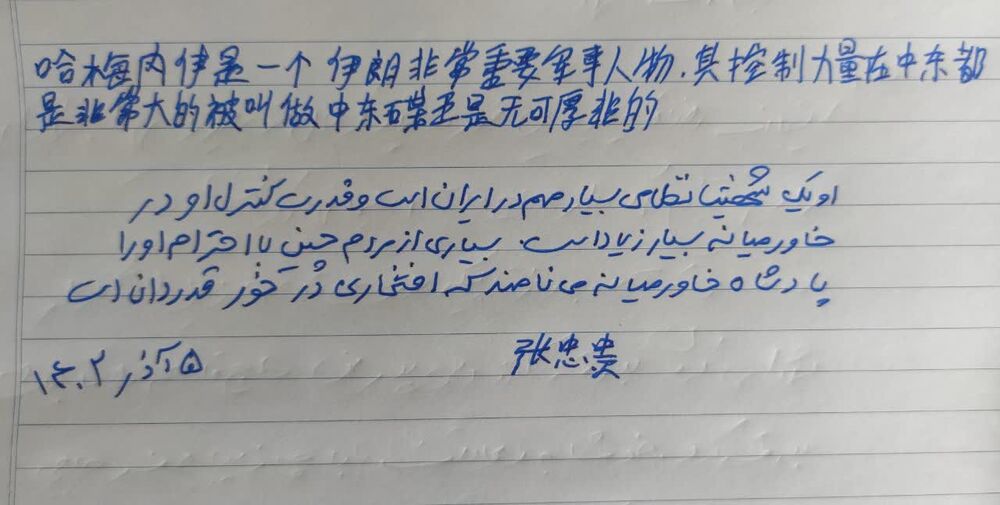 哈梅内伊是一个伊朗非常重要军事人物.其控制力量在中东都
是非常大的被叫做中东 是无可厚非的
او یک شخصیتا نظامی بسیار مهم در ایران است و قدرت کنترل او در
خاورمیانه بسیار زیاد است. بسیاری از مردم چین با احترام او را
پادشاه خاورمیانه می نامند که افتخاری در خور قدردان است
۵ آذر ۱۴۰۲
张忠贵